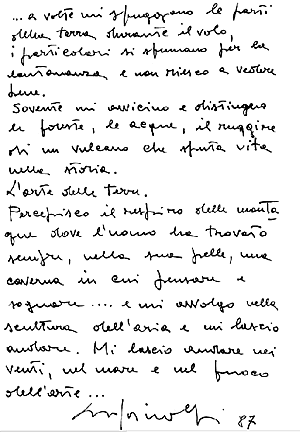 ... a volte mi sfuggono le parti
della terra durante il volo,
i particolari si sfumano per la
lontananza e non riesco a vedere
bene.
Sovente mi avvicino e distinguo
le foreste, le acque, il ruggire
di un vulcano che sputa vita
nella storia.
L'arte della terra.
Percepisco il respiro delle
que dove l'uomo ha trovato
sempre, nella sua pelle, una
caverna in cui pensare e
sognare .... e mi avvolgo nella
scultura dell'aria e mi lascio
andare. Mi lascio andare nei
venti, nel mare e nel fuoco
dell'arte ...
87